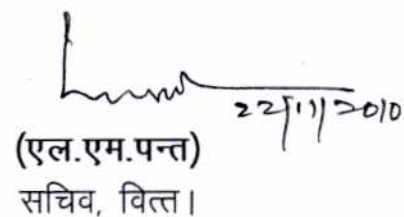 22/11/2010
(एल.एम.पन्त)
सचिव, वित्त।